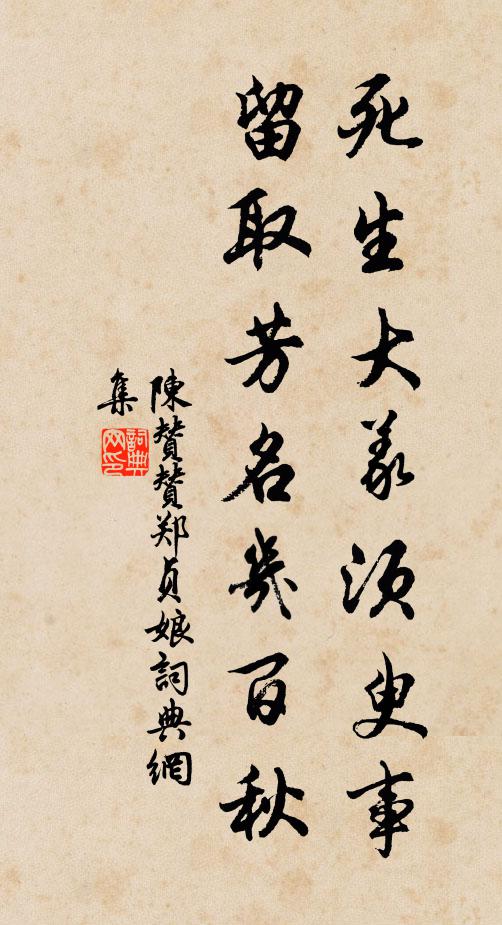 死生大義須臾事
留取芳名幾百秋
陳贊贊郑貞娘詞典網
集
詞典网印